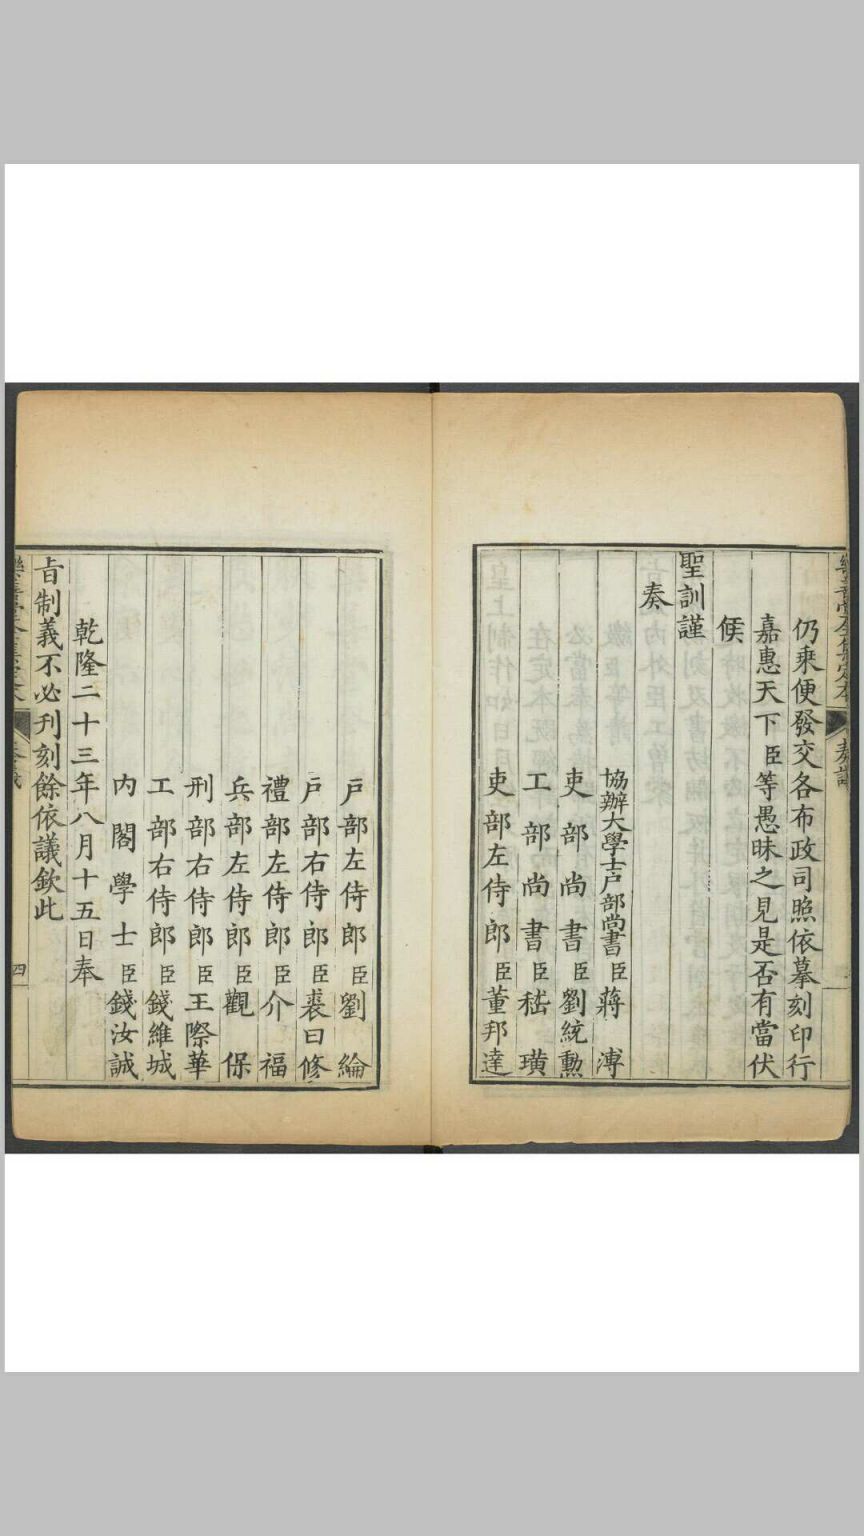 仍乘便發交各布政司照依摹刻印行
嘉惠天下臣等愚昧之見是否有當伏
候
聖訓謹
奏
協辦大學士戶部尚書臣蔣溥
吏部尚書臣劉統勳
工部尚書臣嵇璜
吏部左侍郎臣董邦達
戶部左侍郎臣劉綸
戶部右侍郎臣裘曰修
禮部左侍郎臣介福
兵部左侍郎臣觀保
刑部右侍郎臣王際華
工部右侍郎臣錢維城
内閣學士臣錢汝誠
乾隆二十三年八月十五日奉
旨制義不必刊刻餘依議欽此
四